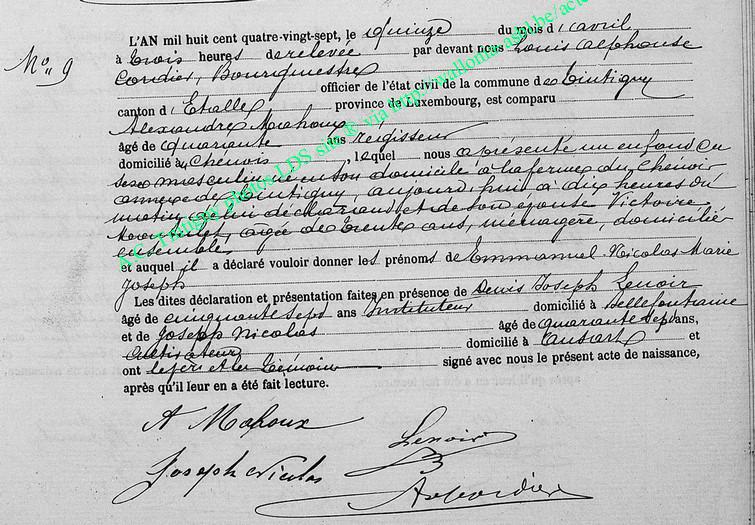 L'AN mil huit cent quatre-vingt-sept, le quinze du mois d'avril
No 9
à trois heures de relevée par devant nous Louis Alphonse
Cordier, Bourgmestre officier de l'état civil de la commune de Tintigny
canton d'Etalle province de Luxembourg, est comparu
Alexandre Mahoux
âgé de quarante ans régisseur
domicilié à Chenois, lequel nous a présenté un enfant du
sexe masculin né en son domicile à la ferme du Chenoir
annexe de Tintigny, aujourd'hui à dix heures du
matin de lui déclarant et de son épouse Victoire
âgée de trente ans, ménagère, domiciliés
ensemble
et auquel il a déclaré vouloir donner les prénoms de Emmanuel Nicolas Marie
Joseph
Les dites déclaration et présentation faites en présence de Denis Joseph Lenoir
âgé de cinquante sept ans Instituteur domicilié à Bellefontaine
et de Joseph Nicolas âgé de quarante sept ans,
cultivateur domicilié à Lansart et
ont le père et les témoins signé avec nous le présent acte de naissance,
après qu'il leur en a été fait lecture.
A Mahoux
Lenoir
Joseph Nicolas
A Cordier